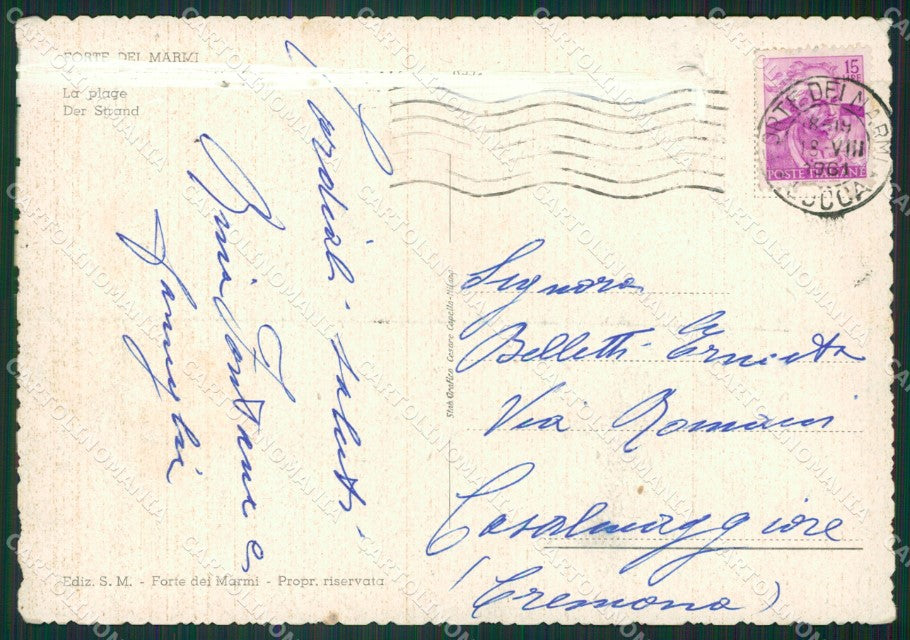 FORTE DEI MARMI
La plage
Der Strand
Cordiali saluti
e
famiglia
15
LIRE
POSTE ITALIANE
FORTE DEI MARMI
18-VIII
1961
LUCCA
Signora
Belletti Ernesta
Via Romani
Casalmaggiore
(Cremona)
Stab. Grafico Cesare Capello - Milano
Ediz. S. M. - Forte dei Marmi - Propr. riservata
CARTOLINOMANIA